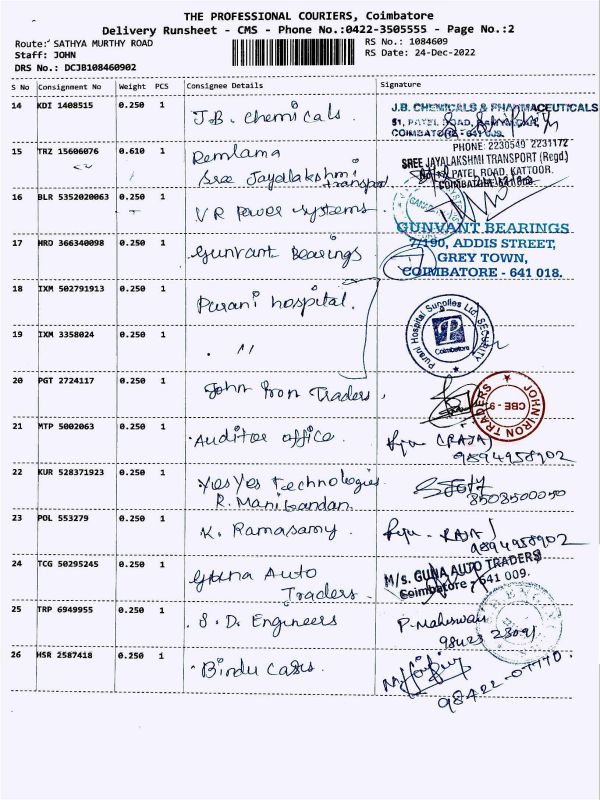 THE PROFESSIONAL COURIERS, Coimbatore
Delivery Runsheet - CMS - Phone No.:0422-3505555 - Page No.:2
Route: SATHYA MURTHY ROAD RS No.: 1084609
Staff: JOHN RS Date: 24-Dec-2022
DRS No.: DCJB108460902
S No Consignment No Weight PCS Consignee Details Signature
14 KDI 1408515 0.250 1 J.B. chemicals. J.B. CHEMICALS & PHARMACEUTICALS
51, PATEL ROAD,
COIMBATORE - 641 009.
15 TRZ 15606076 0.610 1 Remlama PHONE: 2230549 2231172
Sree Jayalakshmi transport SREE JAYALAKSHMI TRANSPORT (Regd.)
PATEL ROAD, KATTOOR.
COIMBATORE
16 BLR 5352020063 0.250 1 VR Power systems
17 HRD 366340098 0.250 1 Gunvant Bearings GUNVANT BEARINGS
7/190, ADDIS STREET,
GREY TOWN,
COIMBATORE - 641 018.
18 IXM 502791913 0.250 1 Purani hospital. Purani Hospital Supplies Ltd SECURITY
Coimbatore
19 IXM 3358024 0.250 1 . 11
20 PGT 2724117 0.250 1 John Iron Traders, JOHN IRON TRADERS
CBE - 9
21 MTP 5002063 0.250 1 Auditor office. (RAJA)
9894958902
22 KUR 528371923 0.250 1 Yes Yes Technologies
R. Manibandan. 8508500050
23 POL 553279 0.250 1 K. Ramasamy. - RAJA
9894958902
24 TCG 50295245 0.250 1 Guna Auto M/s. GUNA AUTO TRADERS
Traders. Coimbatore - 641 009.
25 TRP 6949955 0.250 1 S.D. Engineers P. Maheswari
98423 23091
26 HSR 2587418 0.250 1 Bindu Cabs.
98422-07770.